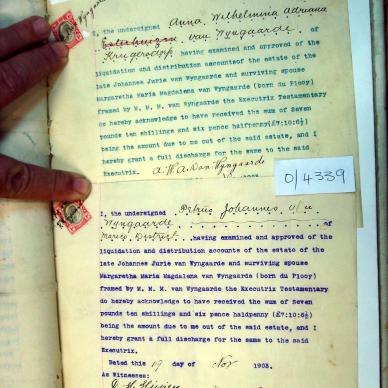 I, the undersigned Anna Wilhelmina Adriana
Esterhuizen van Wyngaarde . of
Krugersdorp having examined and approved of the
liquidation and distribution accounts of the estate of the
late Johannes Jurie van Wyngaarde and surviving spouse
Margaretha Maria Magdalena van Wyngaarde (born du Plooy)
framed by M. M. M. van Wyngaarde the Executrix Testamentary
do hereby acknowledge to have received the sum of Seven
pounds ten shillings and six pence halfpenny (£7:10:6½)
being the amount due to me out of the said estate, and I
hereby grant a full discharge for the same to the said
Executrix.
A. W. A. van Wyngaarde
0/4339
I, the undersigned Petrus Johannes van
Wyngaarde . . . . . . . . . . . . . . of
District . . having examined and approved of the
liquidation and distribution accounts of the estate of the
late Johannes Jurie van Wyngaarde and surviving spouse
Margaretha Maria Magdalena van Wyngaarde (born du Plooy)
framed by M. M. M. van Wyngaarde the Executrix Testamentary
do hereby acknowledge to have received the sum of Seven
pounds ten shillings and six pence halfpenny (£7:10:6½)
being the amount due to me out of the said estate, and I
hereby grant a full discharge for the same to the said
Executrix.
Dated this 19 day of Nov 1903.
As Witnesses: